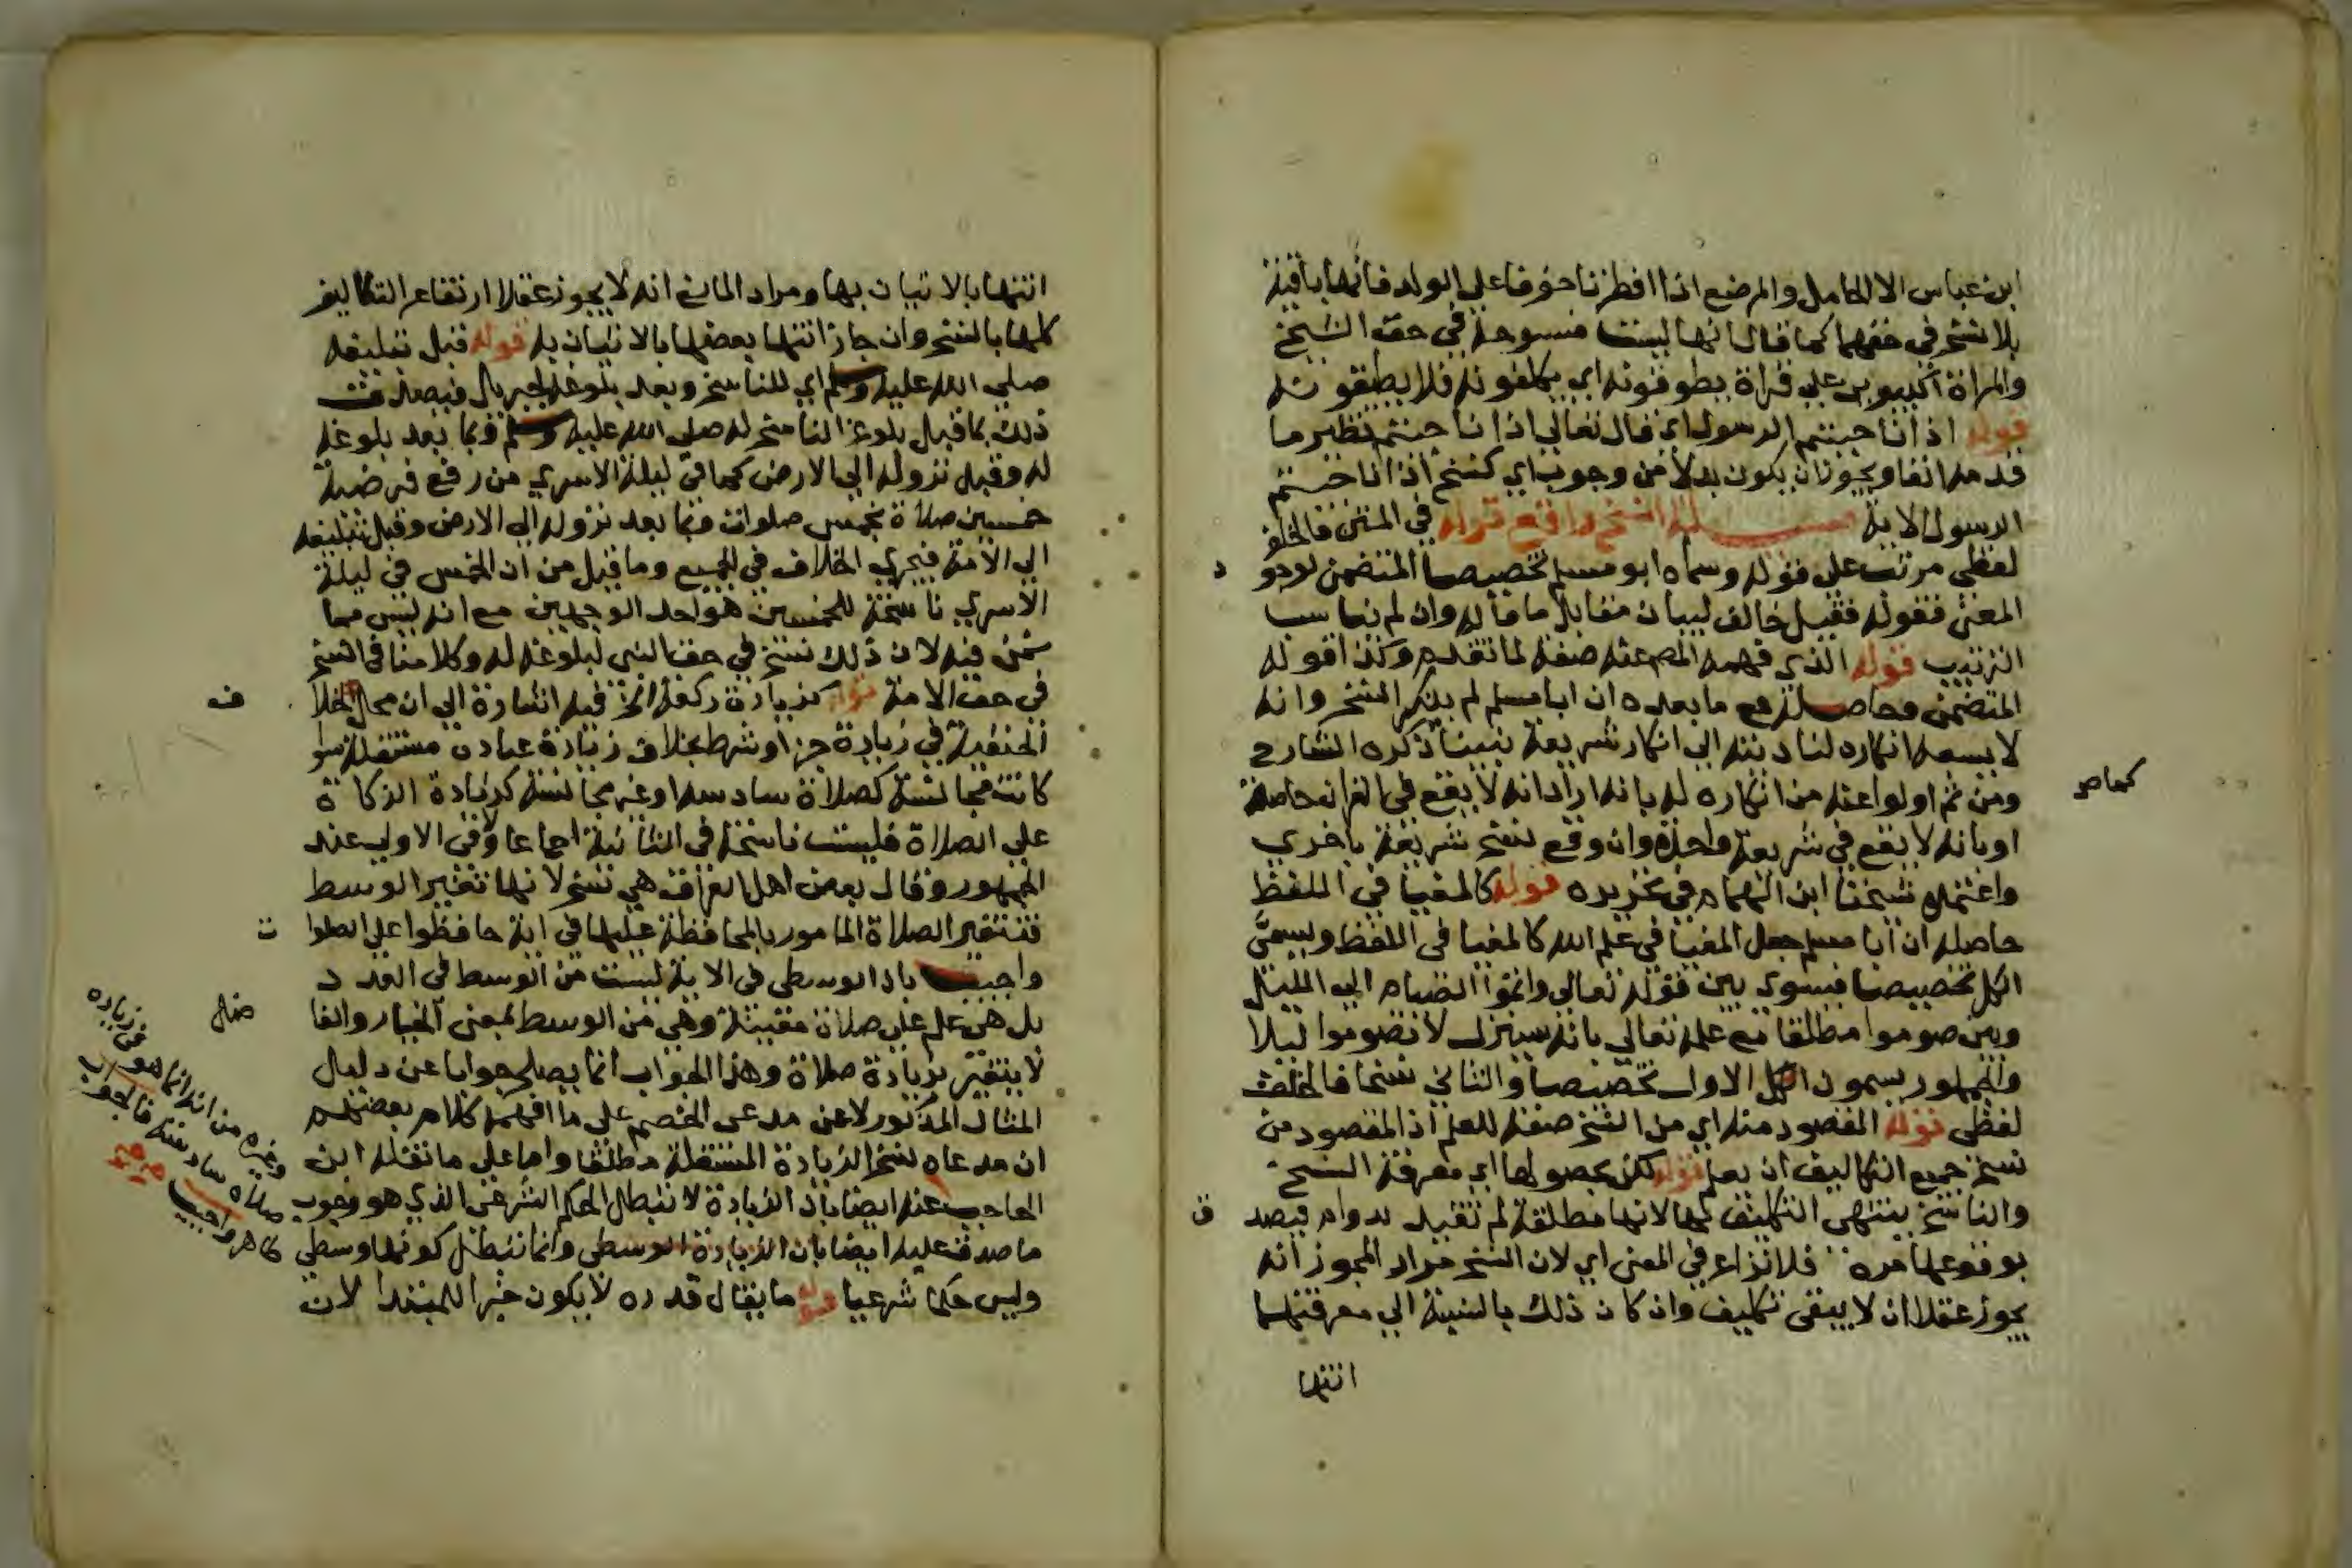 ابن عباس الا الحامل والمرضع اذا افطرتا خوفا على الولد فانها باقية
بلا نسخ في حقهما كما قال انها ليست منسوخة في حق الشيخ
والمراة الكبيرين على قراة يطوقونه اي يكلفونه فلا يطيقونه
قوله اذا ناجيتم الرسول اي قال تعالى اذا ناجيتم نظير ما
قدمه انفا ويجوز ان يكون بدلا من وجوب اي كنسخ اذا ناجيتم
الرسول الاية مسئلة النسخ واقع قوله في المتن فالخلف
لفظي مرتب على قوله وسماه ابو مسلم تخصيصا المتضمن لوجود
المعنى فقوله فقيل خالف لبيان مقابل ما قاله وان لم يناسب
الترتيب قوله الذي فهمه المص عنه صفة لما تقدم وكذا قوله
المتضمن وحاصله مع ما بعده ان ابا مسلم لم ينكر النسخ وانه
لا يسعه انكاره لتاديته الى انكار شريعة نبينا ذكره الشارح
ومن ثم اولوا عنه من انكاره له بانه اراد انه لا يقع في القران خاصة
كماص
او بانه لا يقع في شريعة واحدة وان وقع نسخ شريعة باخري
واعتمده شيخنا ابن الهمام في تحريره قوله كالمغيا في اللفظ
حاصله ان ابا مسلم جعل المغيا في علم الله كالمغيا في اللفظ ويسمي
الكل تخصيصا فيسوي بين قوله تعالى واتموا الصيام الى الليل
وبين صوموا مطلقا مع علمه تعالى بانه سينزل لا تصوموا ليلا
والجمهور يسمون الاول تخصيصا والثاني نسخا فالخلف
لفظي قوله المقصود منه اي من النسخ صفة للعلم اذ المقصود من
نسخ جميع التكاليف ان يعلم قوله لكن بحصولها اي معرفة النسخ
والناسخ ينتهي التكليف بهما لانها مطلقة لم تقيد بدوام فيصدق
بوقوعها مرة فلا نزاع في المعنى اي لان النسخ مراد المجوز انه
يجوز عقلا ان لا يبقى تكليف وان كان ذلك بالنسبة الى معرفتهما
انتها
انتهابالاتيان بها ومراد المانع انه لا يجوز عقلا ارتفاع التكاليف
كلها بالنسخ وان جاز انتها بعضها بالاتيان به قوله قبل تبليغه
صلى الله عليه وسلم اي للناسخ وبعد بلوغه لجبريل فيصدق
ذلك بما قبل بلوغ الناسخ له صلى الله عليه وسلم وبما بعد بلوغه
له وقبل نزوله الى الارض كما في ليلة الاسري من رفع فرضية
خمسين صلاة بخمس صلوات وبما بعد نزوله الى الارض وقبل تبليغه
الى الامة فيجري الخلاف في الجميع وما قيل من ان الخمس في ليلة
الاسري ناسخة للخمسين هو احد الوجهين مع انه ليس مما
نحن فيه لان ذلك نسخ في حق النبي لبلوغه له وكلامنا في النسخ
في حق الامة قوله كزيادة ركعة الخ فيه اشارة الى ان محل الخلاف
الحنفية في زيادة جزا وشرط بخلاف زيادة عبادة مستقلة سوا
كانت مجانسة كصلاة سادسة او غير مجانسة كزيادة الزكاة
على الصلاة فليست ناسخة في الثانية اجماعا وفي الاولى عند
الجمهور وقال بعض اهل العراق هي نسخ لانها تغير الوسط
فتتغير الصلاة المامور بالمحافظة عليها في اية حافظوا على الصلوات
واجيب بان الوسطى في الاية ليست من الوسط في العدد
بل هي علم على صلاة معينة وهي من الوسط بمعنى الخيار والفاضل
لا يتغير بزيادة صلاة وهذا الجواب انما يصلح جوابا عن دليل
المثال المذكور لا عن مدعى الخصم على ما افهمه كلام بعضهم
ان مدعاه نسخ الزيادة المستقلة مطلقا واما على ما نقله ابن
الحاجب عنه ايضا بان الزيادة لا تبطل الحكم الشرعي الذي هو وجوب
ما صدق عليه ايضا بان الزيادة الوسطى وانما تبطل كونها وسطى
وليس حكما شرعيا قوله ما يقال قدره لا يكون خبرا للمبتدا لان
وغيره من انه انما هو في زيادة
صلاة سادسة فالجواب
ظاهر واجيب